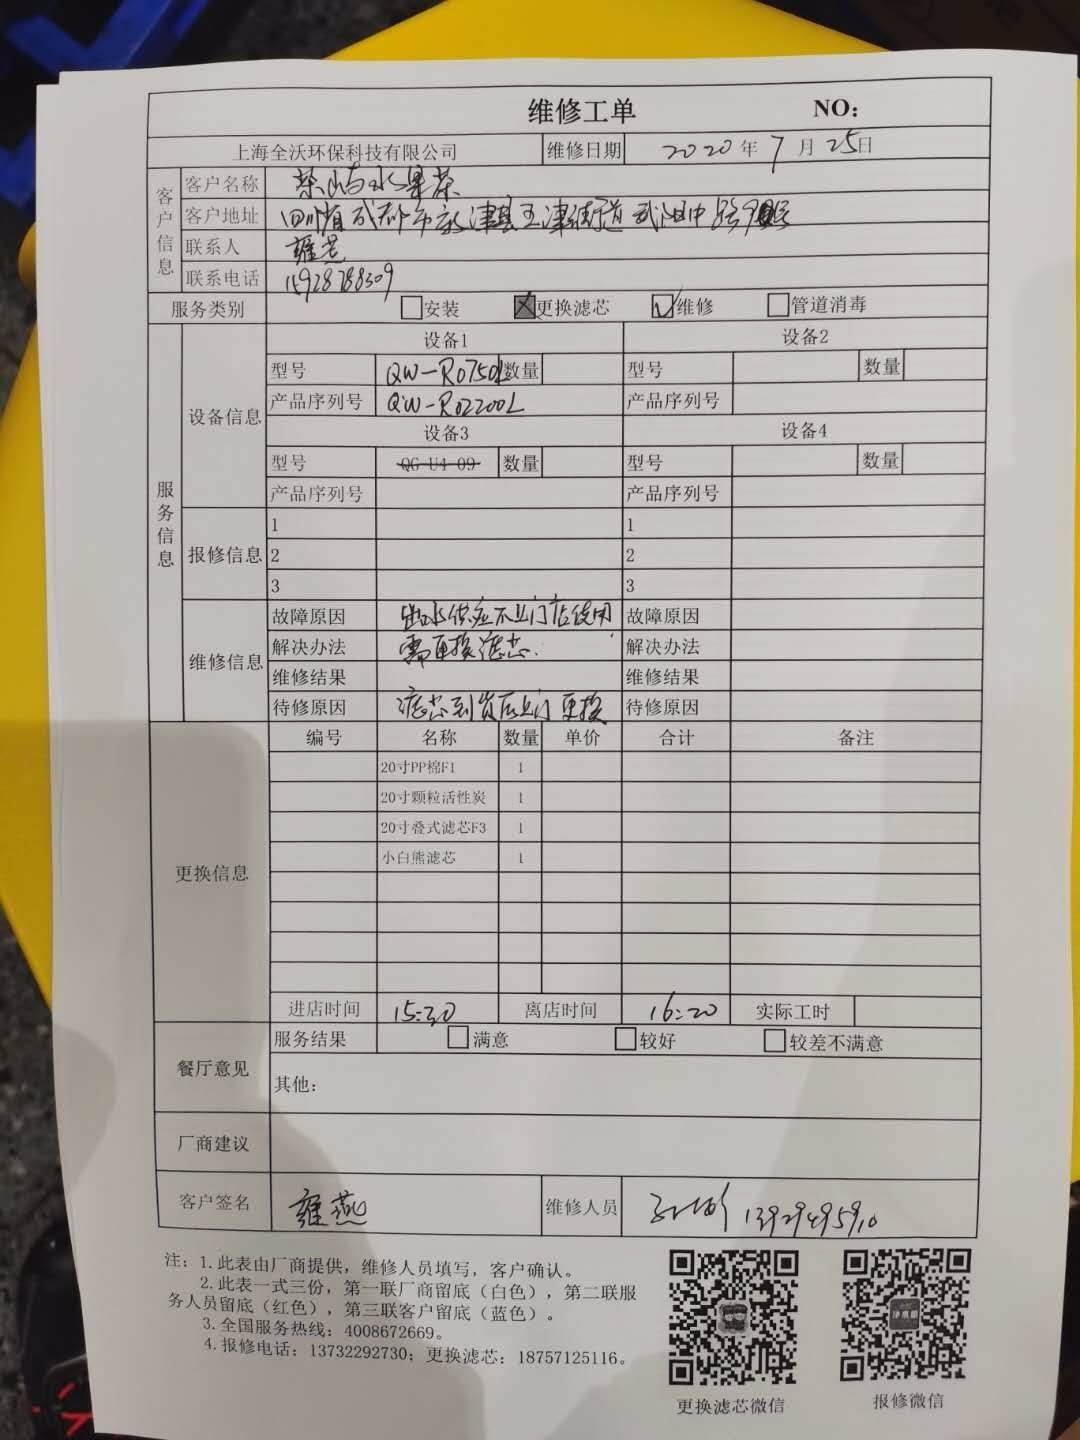 维修工单 NO:
上海全沃环保科技有限公司 维修日期 2020年7月25日
客户信息
客户名称 水果茶
客户地址 四川省成都市新津县五津街道武阳中路
联系人 雍燕
联系电话 15928788309
服务类别 安装 更换滤芯 维修 管道消毒
服务信息
设备信息
设备1 设备2
型号 QW-RO750L 数量 型号 数量
产品序列号 QW-RO2200L 产品序列号
设备3 设备4
型号 QG-U4-09 数量 型号 数量
产品序列号 产品序列号
报修信息
1 1
2 2
3 3
维修信息
故障原因 出水供应不上门店使用 故障原因
解决办法 需更换滤芯. 解决办法
维修结果 维修结果
待修原因 滤芯到货后上门更换 待修原因
更换信息
编号 名称 数量 单价 合计 备注
20寸PP棉F1 1
20寸颗粒活性炭 1
20寸叠式滤芯F3 1
小白熊滤芯 1
进店时间 15:30 离店时间 16:20 实际工时
餐厅意见
服务结果 满意 较好 较差不满意
其他:
厂商建议
客户签名 雍燕 维修人员
注: 1.此表由厂商提供，维修人员填写，客户确认。
2.此表一式三份，第一联厂商留底（白色），第二联服
务人员留底（红色），第三联客户留底（蓝色）。
3.全国服务热线: 4008672669。
4.报修电话: 13732292730; 更换滤芯: 18757125116。
更换滤芯微信 报修微信